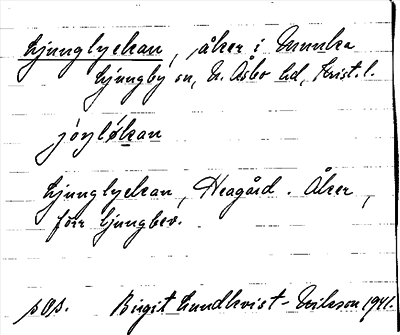 Ljunglyckan, åker i Munka
Ljungby sn, N. Åsbo hd, Krist. l.
jöŋløkan
Ljunglyckan, Heagård. Åker,
förr ljungbev.
s Os. Birgit Lundkvist-Eriksson 1941.